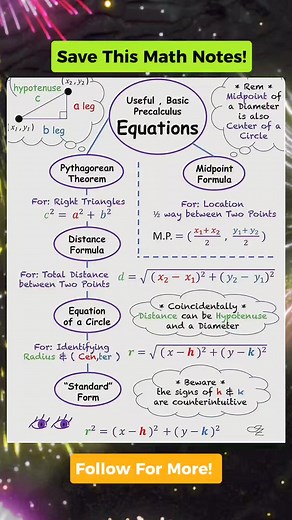 Save This Math Notes!
hypotenuse
c
(x₂, y₂)
a leg
(x₁, y₁)
b leg
Useful , Basic
Precalculus
Equations
* Rem *
Midpoint of
a Diameter
is also
Center of a
Circle
Pythagorean
Theorem
Midpoint
Formula
For: Right Triangles
c² = a² + b²
For: Location
½ way between Two Points
M.P. = (x₁+x₂/2 , y₁+y₂/2)
Distance
Formula
For: Total Distance
between Two Points
d = √(x₂ − x₁)² + (y₂ − y₁)²
Equation
of a Circle
* Coincidentally *
Distance can be Hypotenuse
and a Diameter
For: Identifying
Radius & ( Cen,ter )
r = √(x − h)² + (y − k)²
"Standard"
Form
* Beware *
the signs of h & k
are counterintuitive
r² = (x − h)² + (y − k)²
Follow For More!